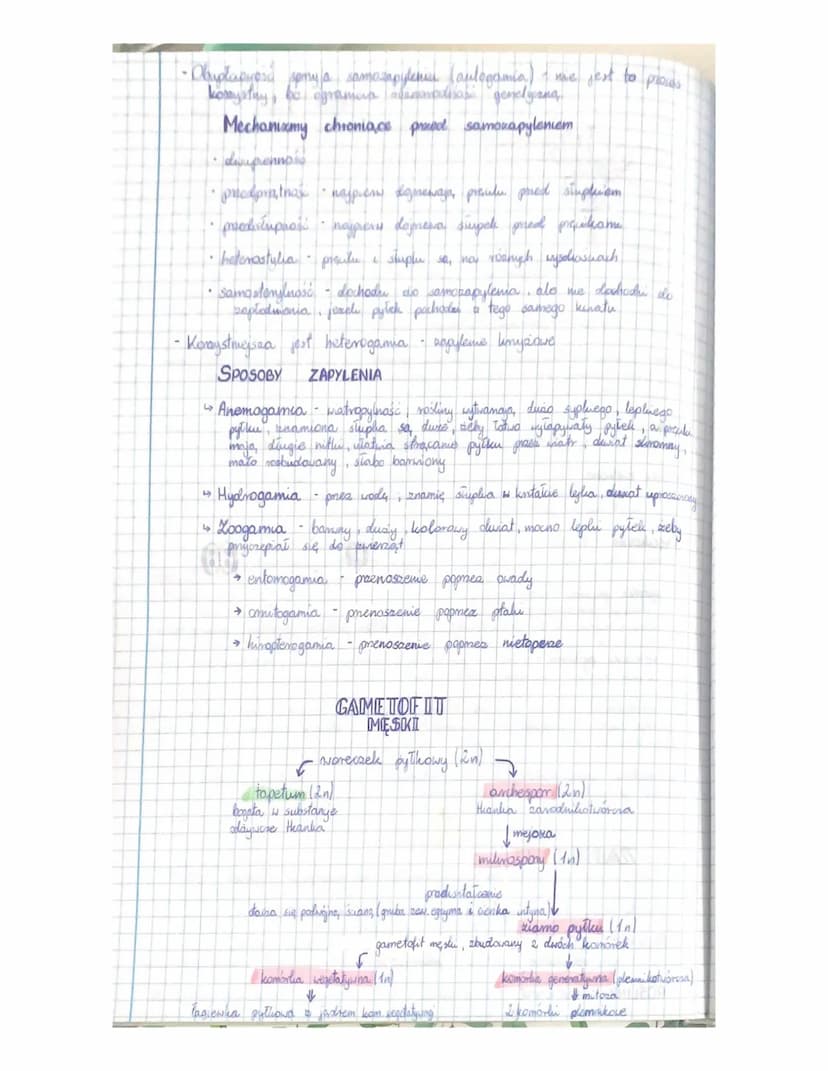 - Obupłciowość sprzyja samozapyleniu (autogamia) - nie jest to proces
korzystny, bo ogranicza różnorodność genetyczną
Mechanizmy chroniące przed samozapyleniem
• dwupienność
• przedprątność - najpierw dojrzewają pręciki przed słupkiem
• przedsłupność - najpierw dojrzewa słupek przed pręcikami
• heterostylia - pręciki i słupki są na różnych wysokościach
• samosterylność - dochodzi do samozapylenia, ale nie dochodzi do
zapłodnienia, jeżeli pyłek pochodzi z tego samego kwiatu
- Korzystniejsza jest heterogamia - zapylenie krzyżowe
SPOSOBY ZAPYLENIA
↳ Anemogamia - wiatropylność, rośliny wytwarzają dużo sypkiego, lepkiego
pyłku, znamiona słupka są duże, żeby łatwo wyłapywały pyłek, a pręciki
mają długie nitki, ułatwia strącanie pyłku przez wiatr, kwiat skromny,
mało rozbudowany, słabo barwiony
↳ Hydrogamia - przez wodę, znamię słupka w kształcie lejka, kwiat uproszczony
↳ Zoogamia - barwny, duży, kolorowy kwiat, mocno lepki pyłek, żeby
przyczepiał się do zwierząt
→ entomogamia - przenoszenie poprzez owady
→ ornitogamia - przenoszenie poprzez ptaki
→ hiropterogamia - przenoszenie poprzez nietoperze
GAMETOFIT
MĘSKI
woreczek pyłkowy (2n)
tapetum (2n)
archespor (2n)
bogata w substancje
odżywcze tkanka
tkanka zarodnikotwórcza
↓ mejoza
mikrospory (1n)
przekształcenie
ściana (gruba zew. egzyma i cienka intyna)
ziarno pyłku (1n)
gametofit męski, zbudowany z dwóch komórek
komórka wegetatywna (1n)
komórka generatywna (plemnikotwórcza)
⇓ mitoza
łagiewka pyłkowa z jądrem kom. wegetatywnej
2 komórki plemnikowe